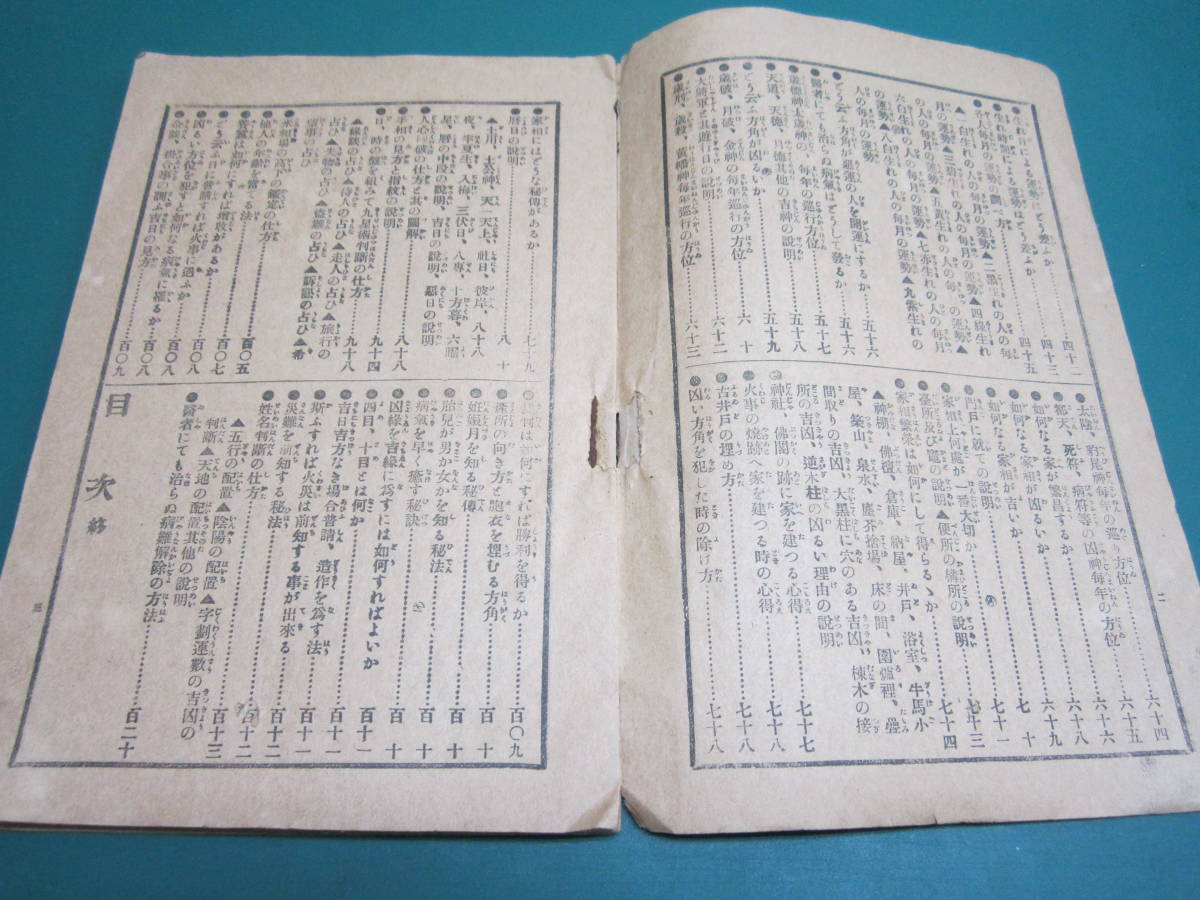 ●生れ年による運勢はどう差ふか……四十二
●生れ月に依る運勢はどう差ふか……四十三
●各々の毎月の運勢の調べ方……四十五
▲一白生れの人の毎月の運勢▲二黒生れの人の毎
月の運勢▲三碧生れの人の毎月の運勢▲四綠生れ
の人の毎月の運勢▲五黄生れの人の毎月の運勢▲
六白生れの人の毎月の運勢▲七赤生れの人の毎月
の運勢▲八白生れの人の毎月の運勢▲九紫生れの
人の毎月の運勢
●どう云ふ方角が惡運の人を開運にするか……五十六
●醫者にても治らぬ病氣はどうして發るか……五十七
●歳德神太歳神の、毎年の巡行方位……五十八
●天道、天德、月德其他の吉神の說明……五十九
●どう云ふ方角が凶るいか……六十
●歳破、月破、金神の毎年巡行の方位……六十二
●大將軍と其遊行日の說明
●歳刑、歳殺、黄幡神毎年巡行の方位……六十三
●太陰、豹尾神毎年の巡り方位……六十四
●都天、死符、病符等の凶神毎年の方位……六十五
●如何なる家が繁昌するか……六十六
●如何なる家相が凶るいか……六十八
●如何なる家相が吉いか……六十九
●門戸に就ての說明……七十
●家相上何處が一番大切か……七十三
●臺所及び竈の說明▲便所の搆所の說明……七十四
●家相繁榮は如何にして得らるゝか
▲神棚、佛壇、倉庫、納屋、井戸、浴室、牛馬小
屋、築山、泉水、塵芥捨場、床の間、圍爐裡、疊
間取りの吉凶、大黑柱に穴のある吉凶、棟木の接
所の吉凶、逆木柱の凶るい理由の說明……七十七
●神社、佛閣の跡に家を建つる心得……七十八
●火事の燒跡へ家を建つる時の心得
●古井戸の埋め方……七十八
●凶い方角を犯した時の除け方……七十八
二
●家相にはどうな秘傳があるか……七十九
●曆日の說明……八十
▲土用、大公神、天一天上、社日、彼岸、八十八
夜、半夏生、入梅、三伏日、八專、十方暮、六曜
星、曆の中段の說明、吉日の說明、惡日の說明
●人心の破の仕方と其の圖解……八十八
●手相の見方と指紋の說明……九十四
●日、時の盤を組みて九星術判斷の仕方……九十八
▲緣談の占ひ▲待人の占ひ▲走人の占ひ▲旅行の
占ひ▲失物の占ひ▲盜難の占ひ▲訴訟の占ひ▲希
●米相場の高下の鑑定の仕方……百〇五
●他人の年齡を當てる法……百〇七
●養蠶は如何にすれば增收があるか……百〇八
●どう云ふ日に普請すれば火事に遇ふか……百〇八
●凶るい方位を犯すと如何なる病氣に罹るか……百〇八
●金談、掛合事の調ふ吉日の見方……百〇九
●裁判は如何にすれば勝利を得るか……百〇九
●產所の向き方と胞衣を埋むる方角……百十
●姙娠月を知る秘傳……百十
●胎兒が男か女かを知る秘法……百十
●病氣を早く癒す秘訣……百十
●凶緣を吉緣に爲すには如何すればよいか……百十一
●四目、十目とは何か……百十一
●吉日吉方なき場合普請、造作を爲す法……百十一
●斯ふすれば火災は前知する事が出來る
●災難を前知する秘法……百十二
●姓名判斷の仕方……百十二
▲五行の配置▲陰陽の配置▲字劃運數の吉凶の
判斷▲天地の配置其他の說明……百十三
●醫者にても治らぬ病難解除の方法……百二十
目次終
三